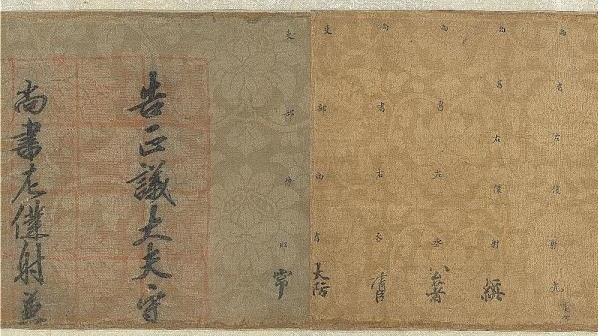 尚書左僕射 光
尚書右僕射 縝
尚書左丞
尚書右丞
吏部尚書 大防
吏部侍郎 常
告正議大夫守
尚書左僕射兼